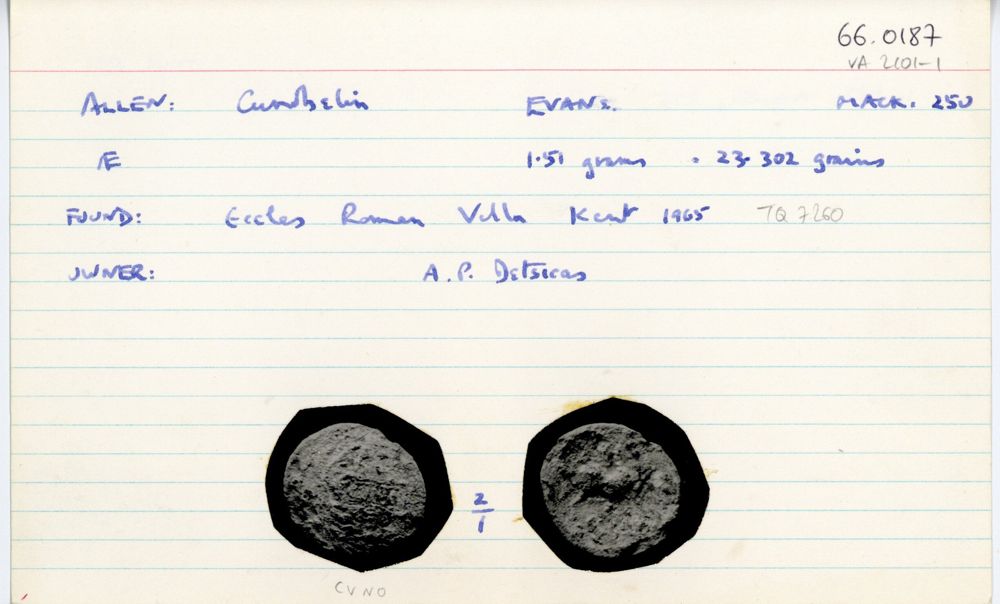 66.0187
VA 2101-1
ALLEN: Cunobelin EVANS. MACK. 250
Æ 1.51 grams . 23.302 grains
FOUND: Eccles Roman Villa Kent 1965 TQ 7260
OWNER: A.P. Detsicas
2/1
CVNO